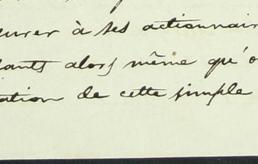 urer à ses actionnair
ants alors même qu'o
ation de cette simple